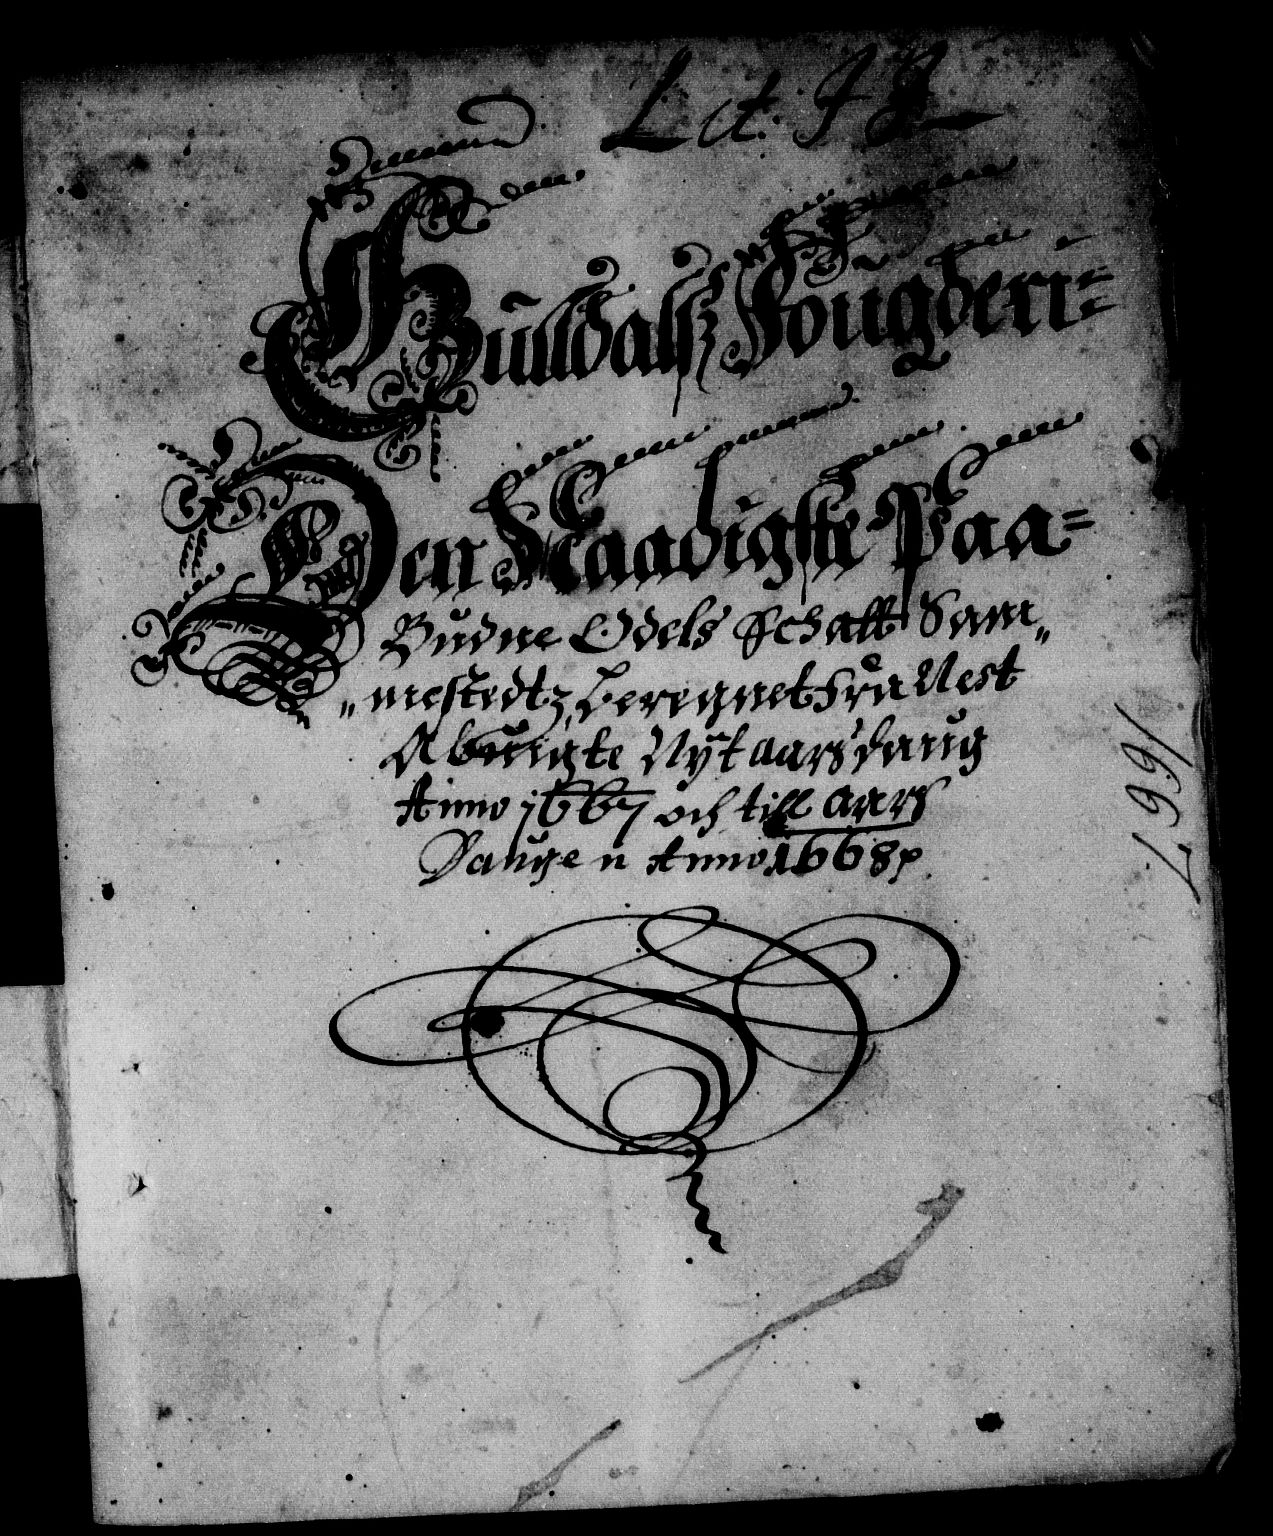 Lit. J J
Gùldalsz Foùgderi=
Den Naadigste Paa=
Bùdne Odels Schatt Sam„
„mestedtz, Beregnet fra Nest
Afvùigte Nÿtaarsdaùg
Anno 1667 och till aars
Daùgen Anno 1668
1667